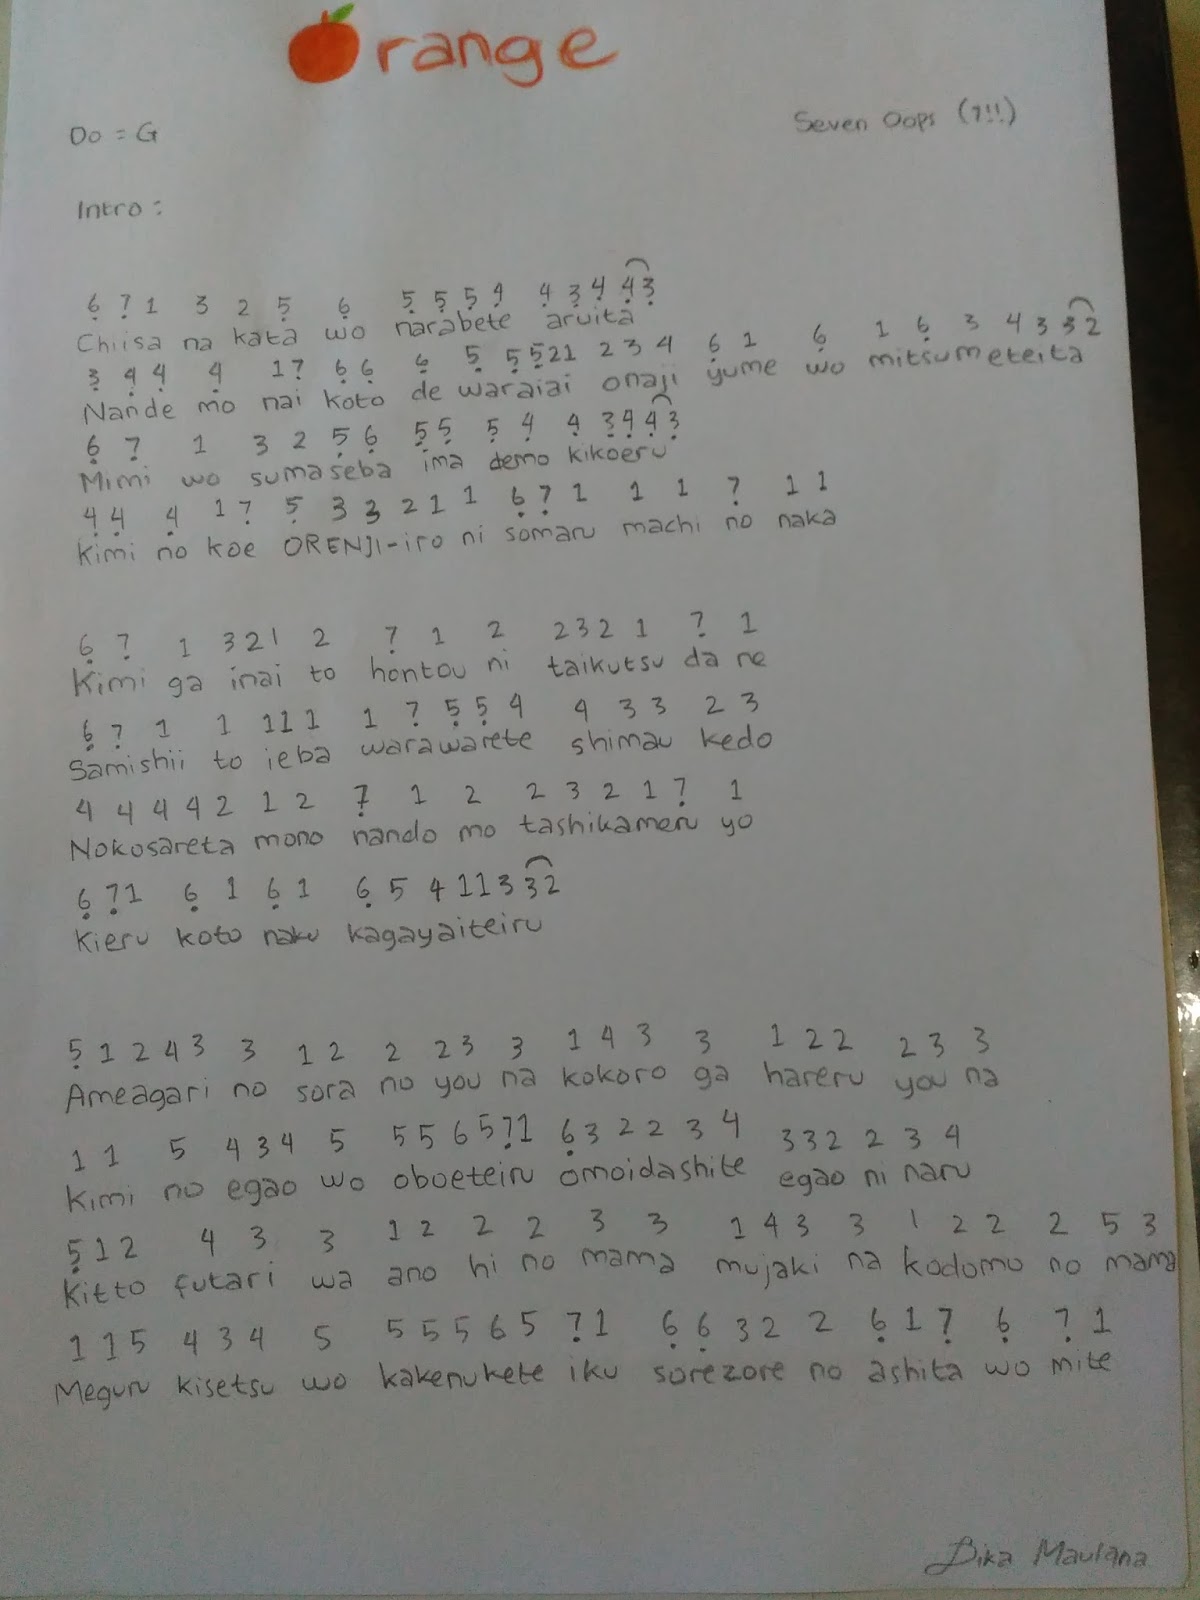 Orange
Do = G
Seven Oops (7!!)
Intro :
6̣ 7̣ 1 3 2 5̣ 6̣ 5̣ 5̣ 5̣ 4̣ 4̣ 3̣ 4̣ 4̣ 3̣
Chiisa na kata wo narabete aruita
3̣ 4̣ 4̣ 4̣ 1 7̣ 6̣ 6̣ 6̣ 5̣ 5̣ 5̣ 2 1 2 3 4 6̣ 1 6̣ 1 6̣ 3 4 3 3 2
Nande mo nai koto de waraiai onaji yume wo mitsumeteita
6̣ 7̣ 1 3 2 5̣ 6̣ 5̣ 5̣ 5̣ 4̣ 4̣ 3̣ 4̣ 4̣ 3̣
Mimi wo sumaseba ima demo kikoeru
4̣ 4̣ 4̣ 1 7̣ 5̣ 3 3 2 1 1 6̣ 7̣ 1 1 1 7̣ 1 1
Kimi no koe ORENJI-iro ni somaru machi no naka
6̣ 7̣ 1 3 2 1 2 7̣ 1 2 2 3 2 1 7̣ 1
Kimi ga inai to hontou ni taikutsu da ne
6̣ 7̣ 1 1 1 1 1 1 7̣ 5̣ 5̣ 4 4 3 3 2 3
Samishii to ieba warawarete shimau kedo
4 4 4 4 2 1 2 7̣ 1 2 2 3 2 1 7̣ 1
Nokosareta mono nando mo tashikameru yo
6̣ 7̣ 1 6̣ 1 6̣ 1 6̣ 5 4 1 1 3 3 2
Kieru koto naku kagayaiteiru
5̣ 1 2 4 3 3 1 2 2 2 3 3 1 4 3 3 1 2 2 2 3 3
Ameagari no sora no you na kokoro ga hareru you na
1 1 5 4 3 4 5 5 5 6 5 7̣ 1 6̣ 3 2 2 3 4 3 3 2 2 3 4
Kimi no egao wo oboeteiru omoidashite egao ni naru
5̣ 1 2 4 3 3 1 2 2 2 3 3 1 4 3 3 1 2 2 2 5 3
Kitto futari wa ano hi no mama mujaki na kodomo no mama
1 1 5 4 3 4 5 5 5 5 6 5 7̣ 1 6̣ 6̣ 3 2 2 6̣ 1 7̣ 6̣ 7̣ 1
Meguru kisetsu wo kakenukete iku sorezore no ashita wo mite
Dika Maulana